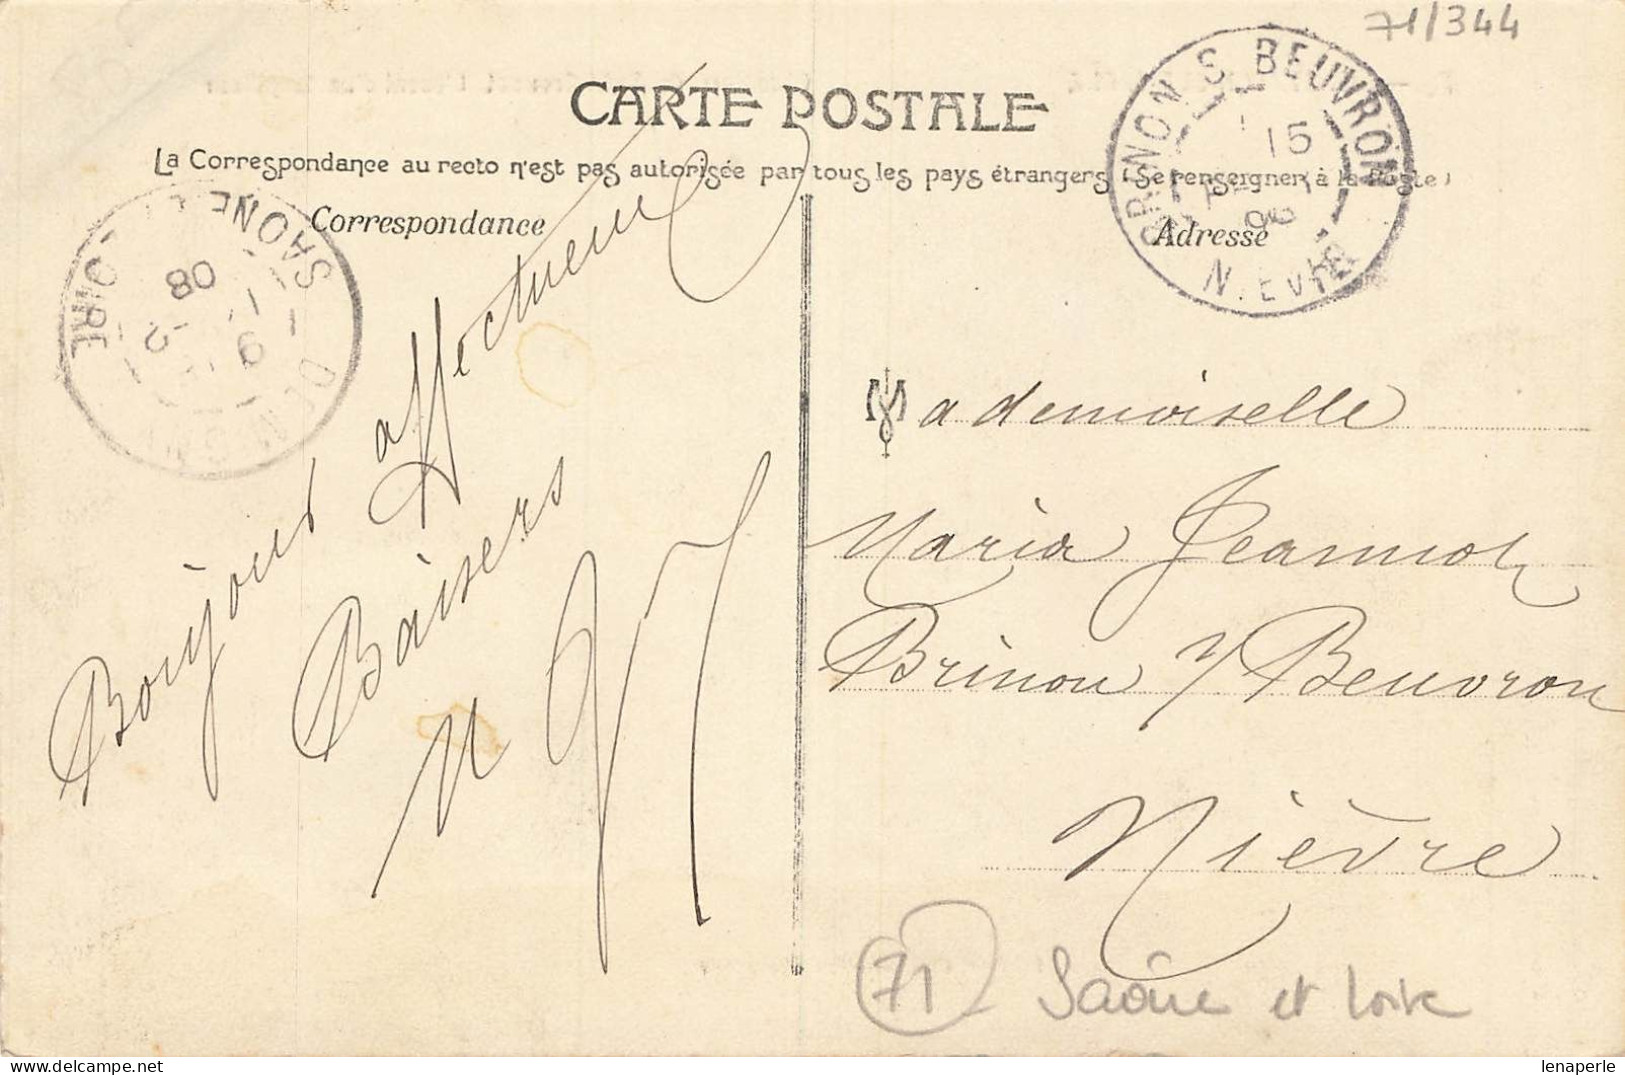 71/344
CARTE POSTALE
La Correspondance au recto n'est pas autorisée par tous les pays étrangers (Se renseigner à la Poste)
Correspondance
Adresse
S. BEUVRON
15
08
NIÈVRE
SAONE
LOIRE
08
Bonjour affectueux
Baisers
Mademoiselle
Maria Jeannot
Brinon s/ Beuvron
Nièvre
71 Saône et Loire
lenaperle